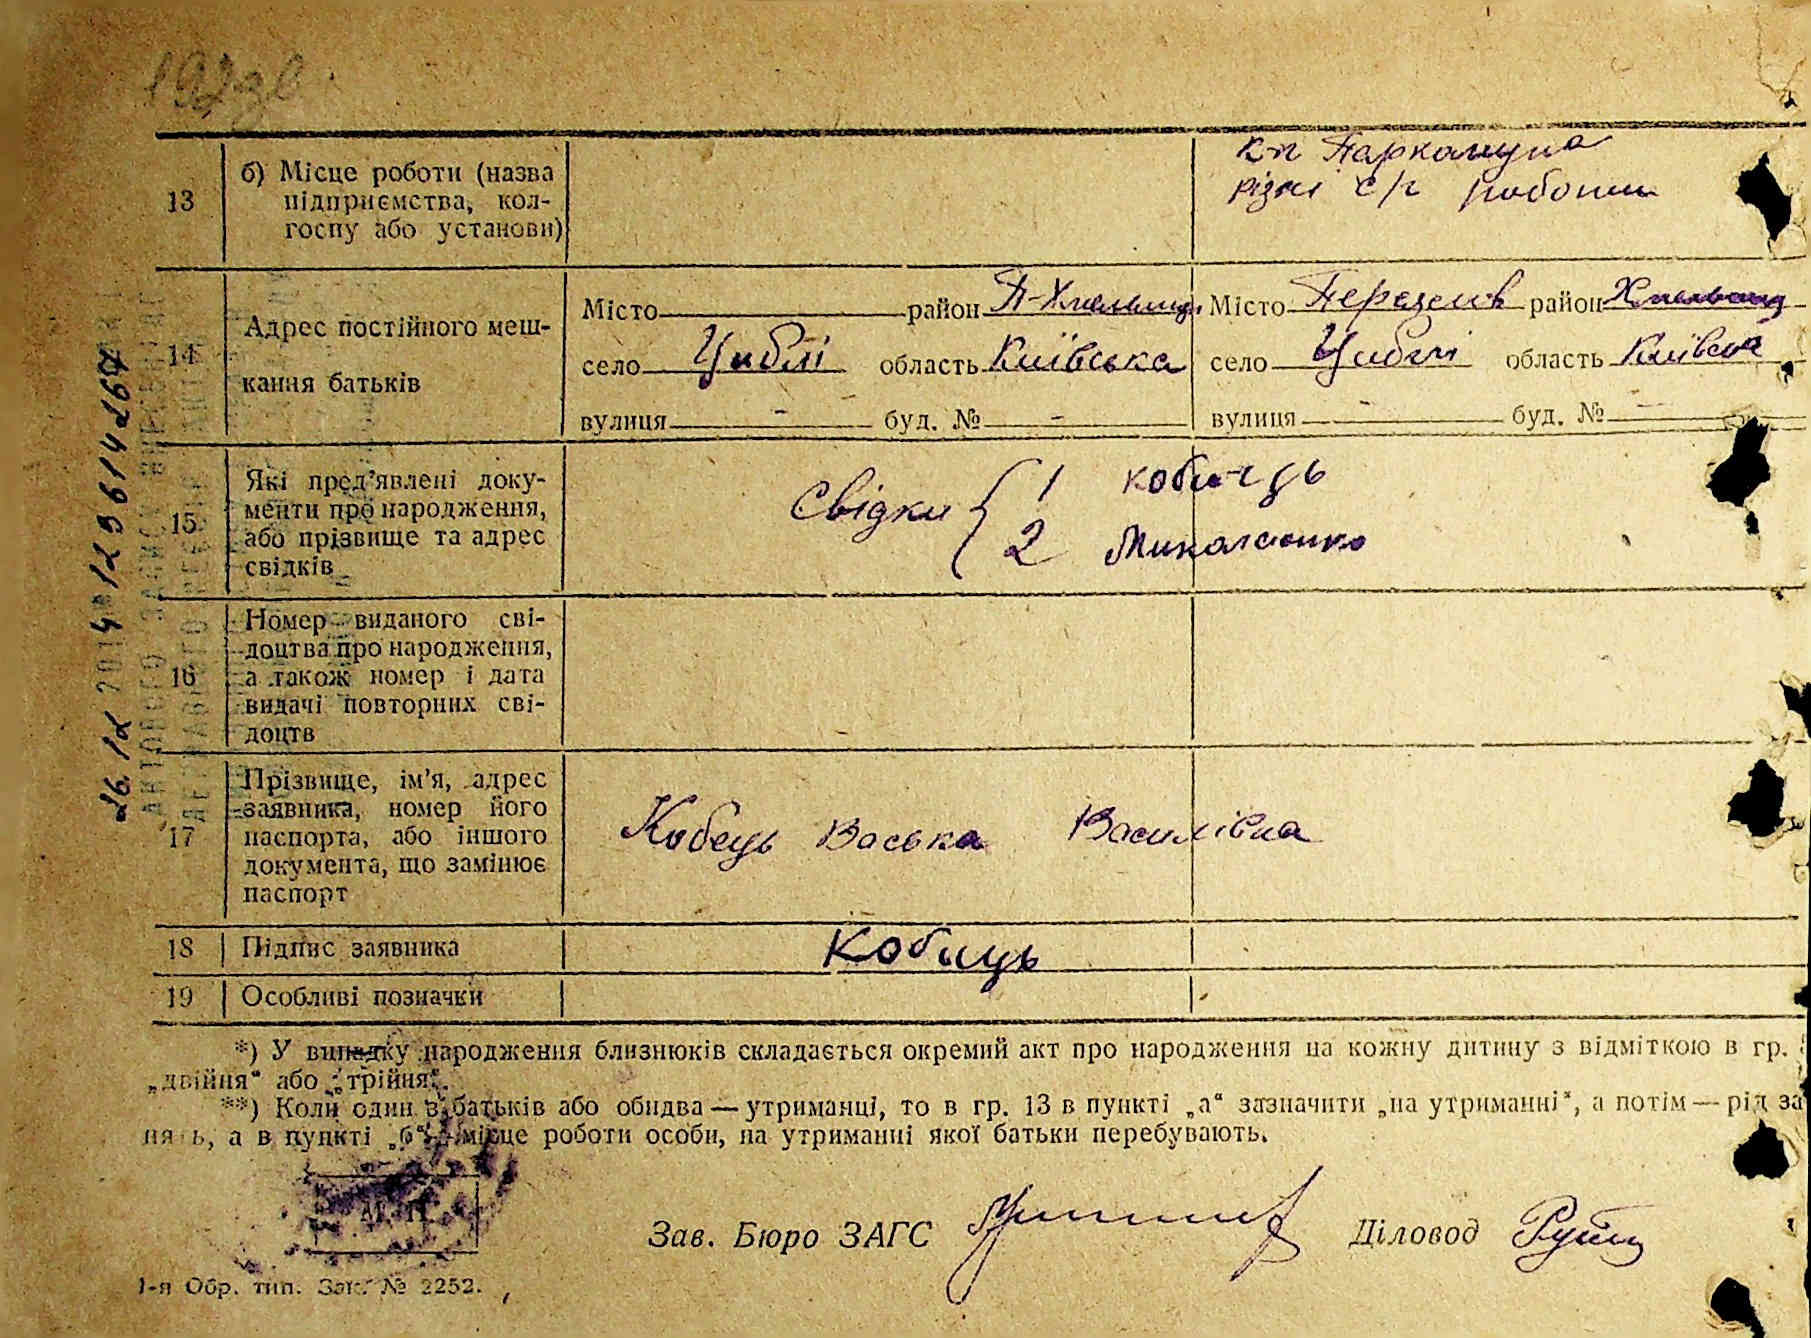 192 зв.
13 б) Місце роботи (назва підприємства, колгоспу або установи)
кп Паркомуна
різні с/г роботи
14 Адрес постійного мешкання батьків
Місто район П-Хмельниц
село Циблі область Київська
вулиця - буд. № -
Місто Переяслів район Хмельниц
село Циблі область Київська
вулиця - буд. № -
15 Які пред'явлені документи про народження, або прізвище та адрес свідків
Свідки { 1 кобиць
2 Миколаенко
16 Номер виданого свідоцтва про народження, а також номер і дата видачі повторних свідоцтв
17 Прізвище, ім'я, адрес заявника, номер його паспорта, або іншого документа, що замінює паспорт
Кобець Васька Василівна
18 Підпис заявника
Кобиць
19 Особливі позначки
*) У випадку народження близнюків складається окремий акт про народження на кожну дитину з відміткою в гр.
„двійня“ або „трійня“.
**) Коли один з батьків або обидва — утриманці, то в гр. 13 в пункті „а“ зазначити „на утриманні“, а потім — рід за
нять, а в пункті „б“ — місце роботи особи, на утриманні якої батьки перебувають.
М. П.
Зав. Бюро ЗАГС Діловод
1-я Обр. тип. Зак. № 2252.
26.12 2014 129614267